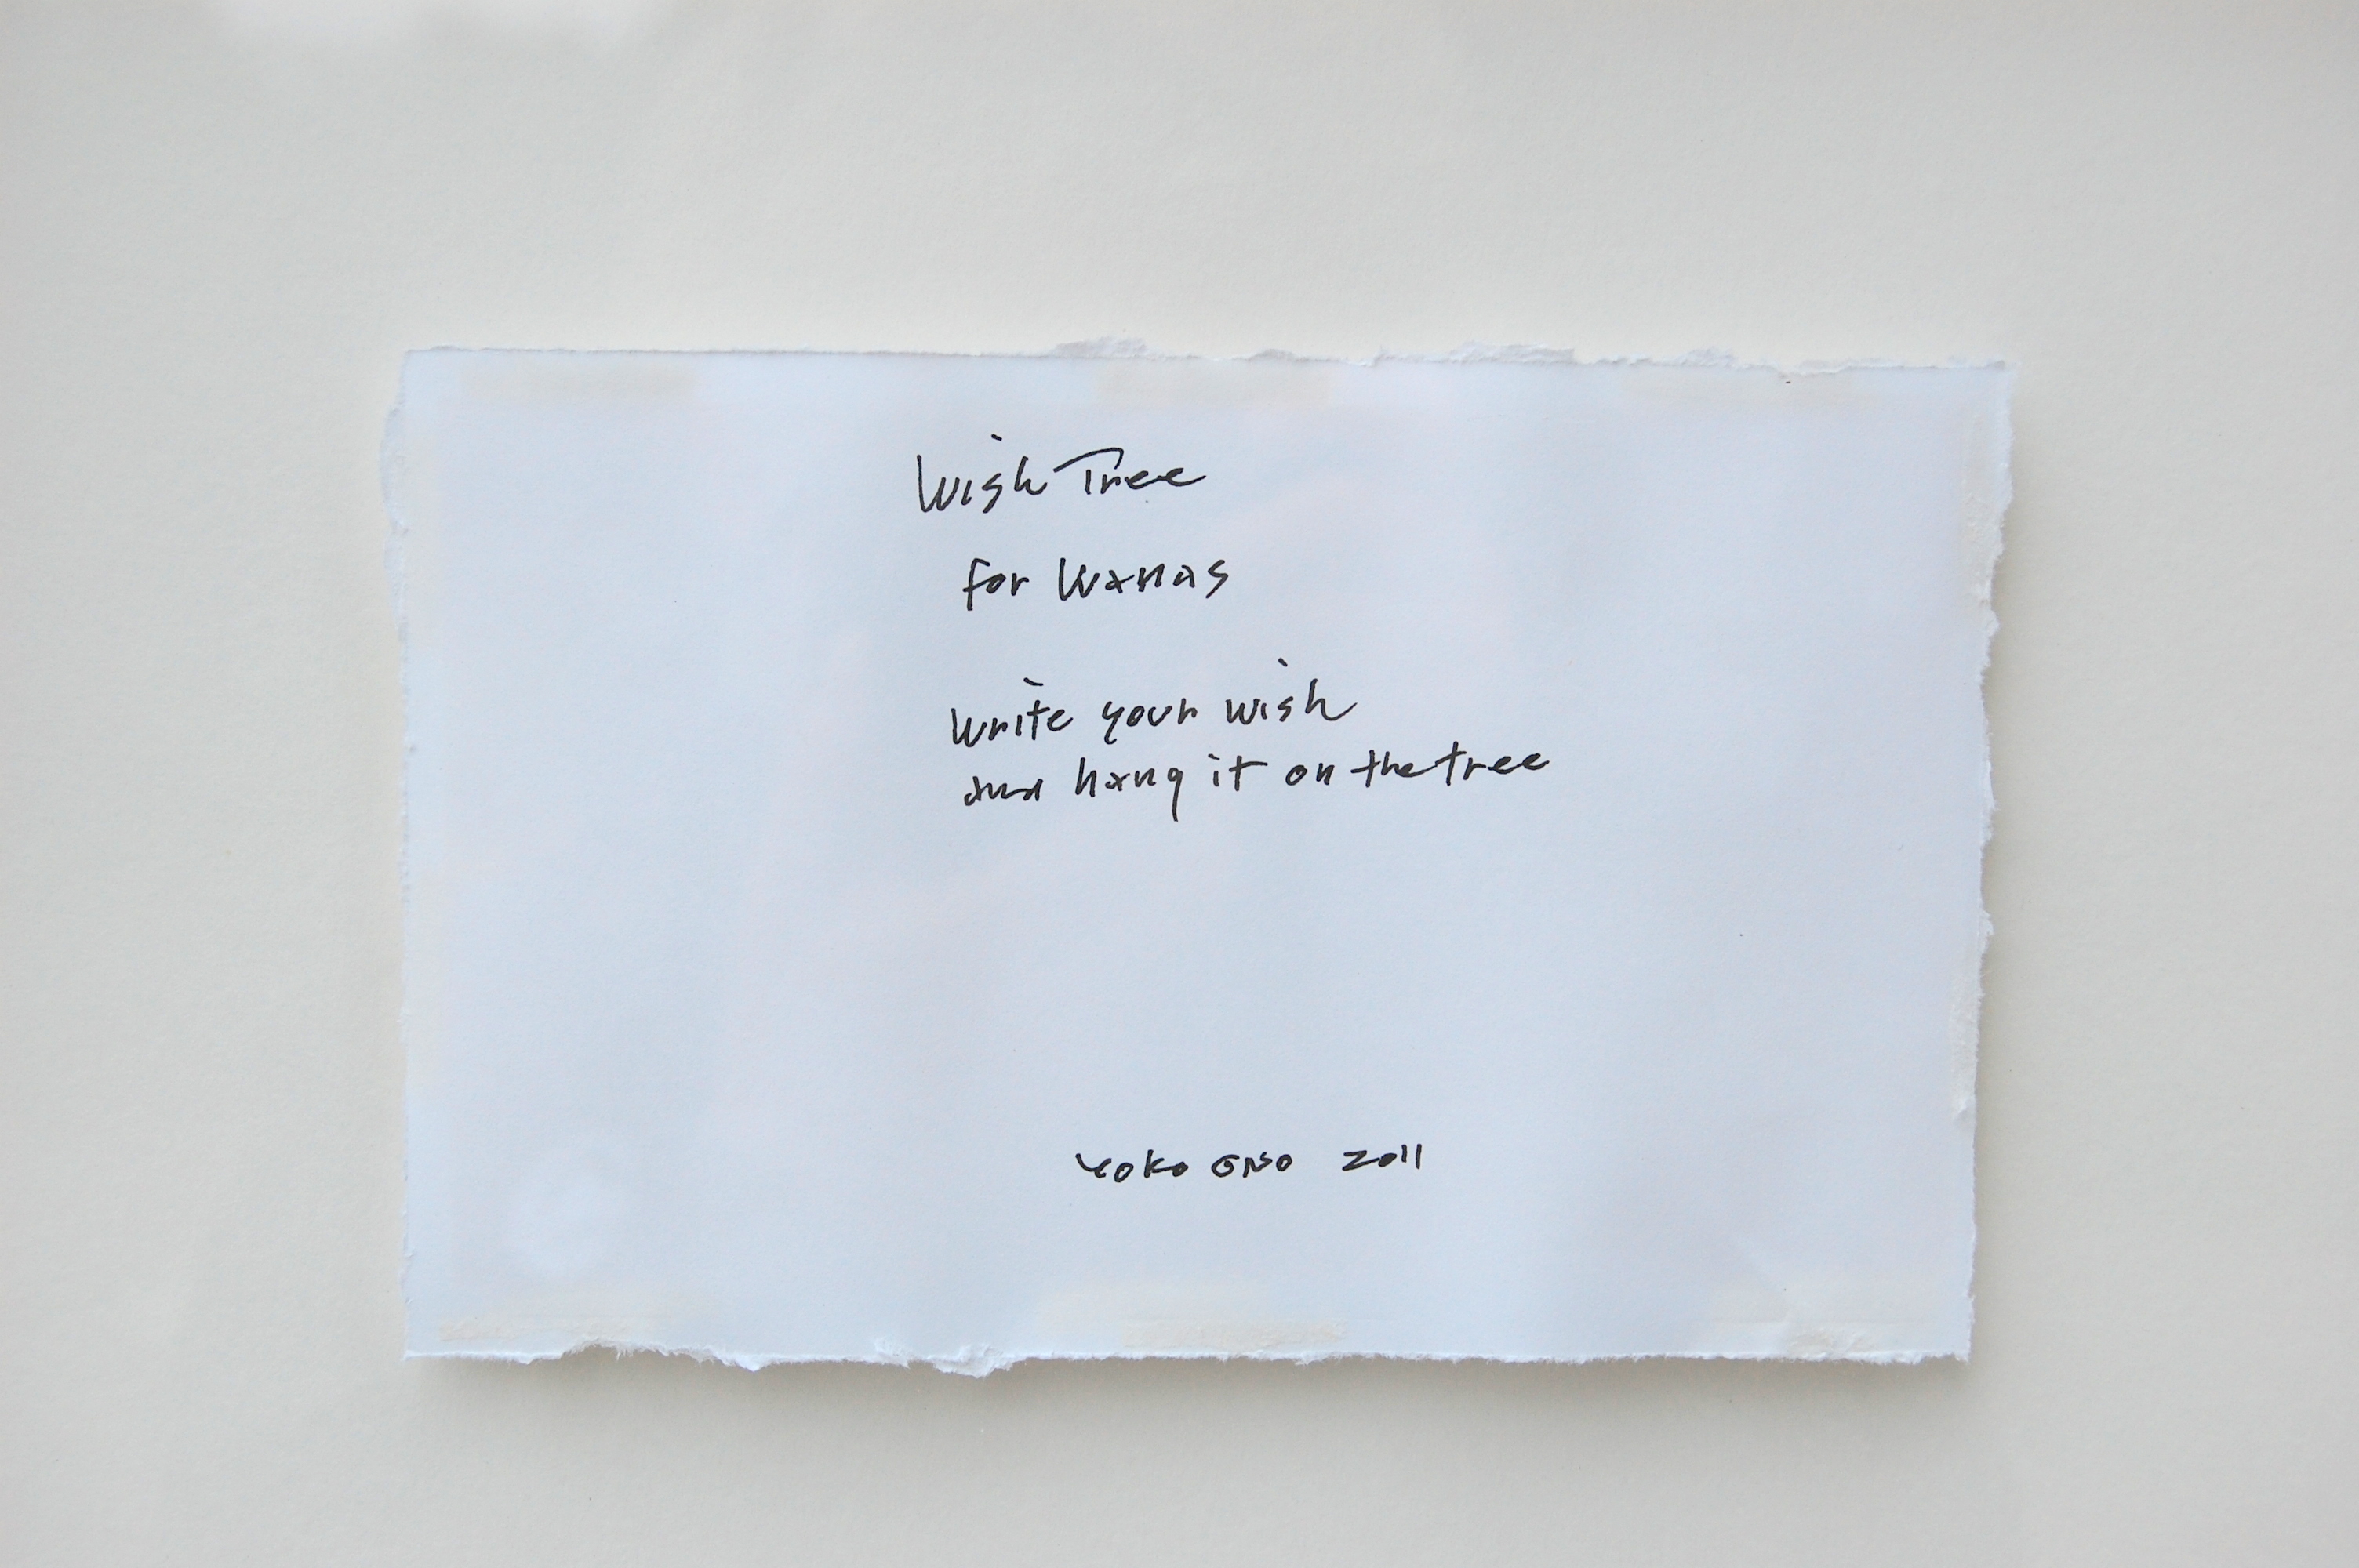 Wish Tree
for Wanas
write your wish
and hang it on the tree
YOKO ONO 2011